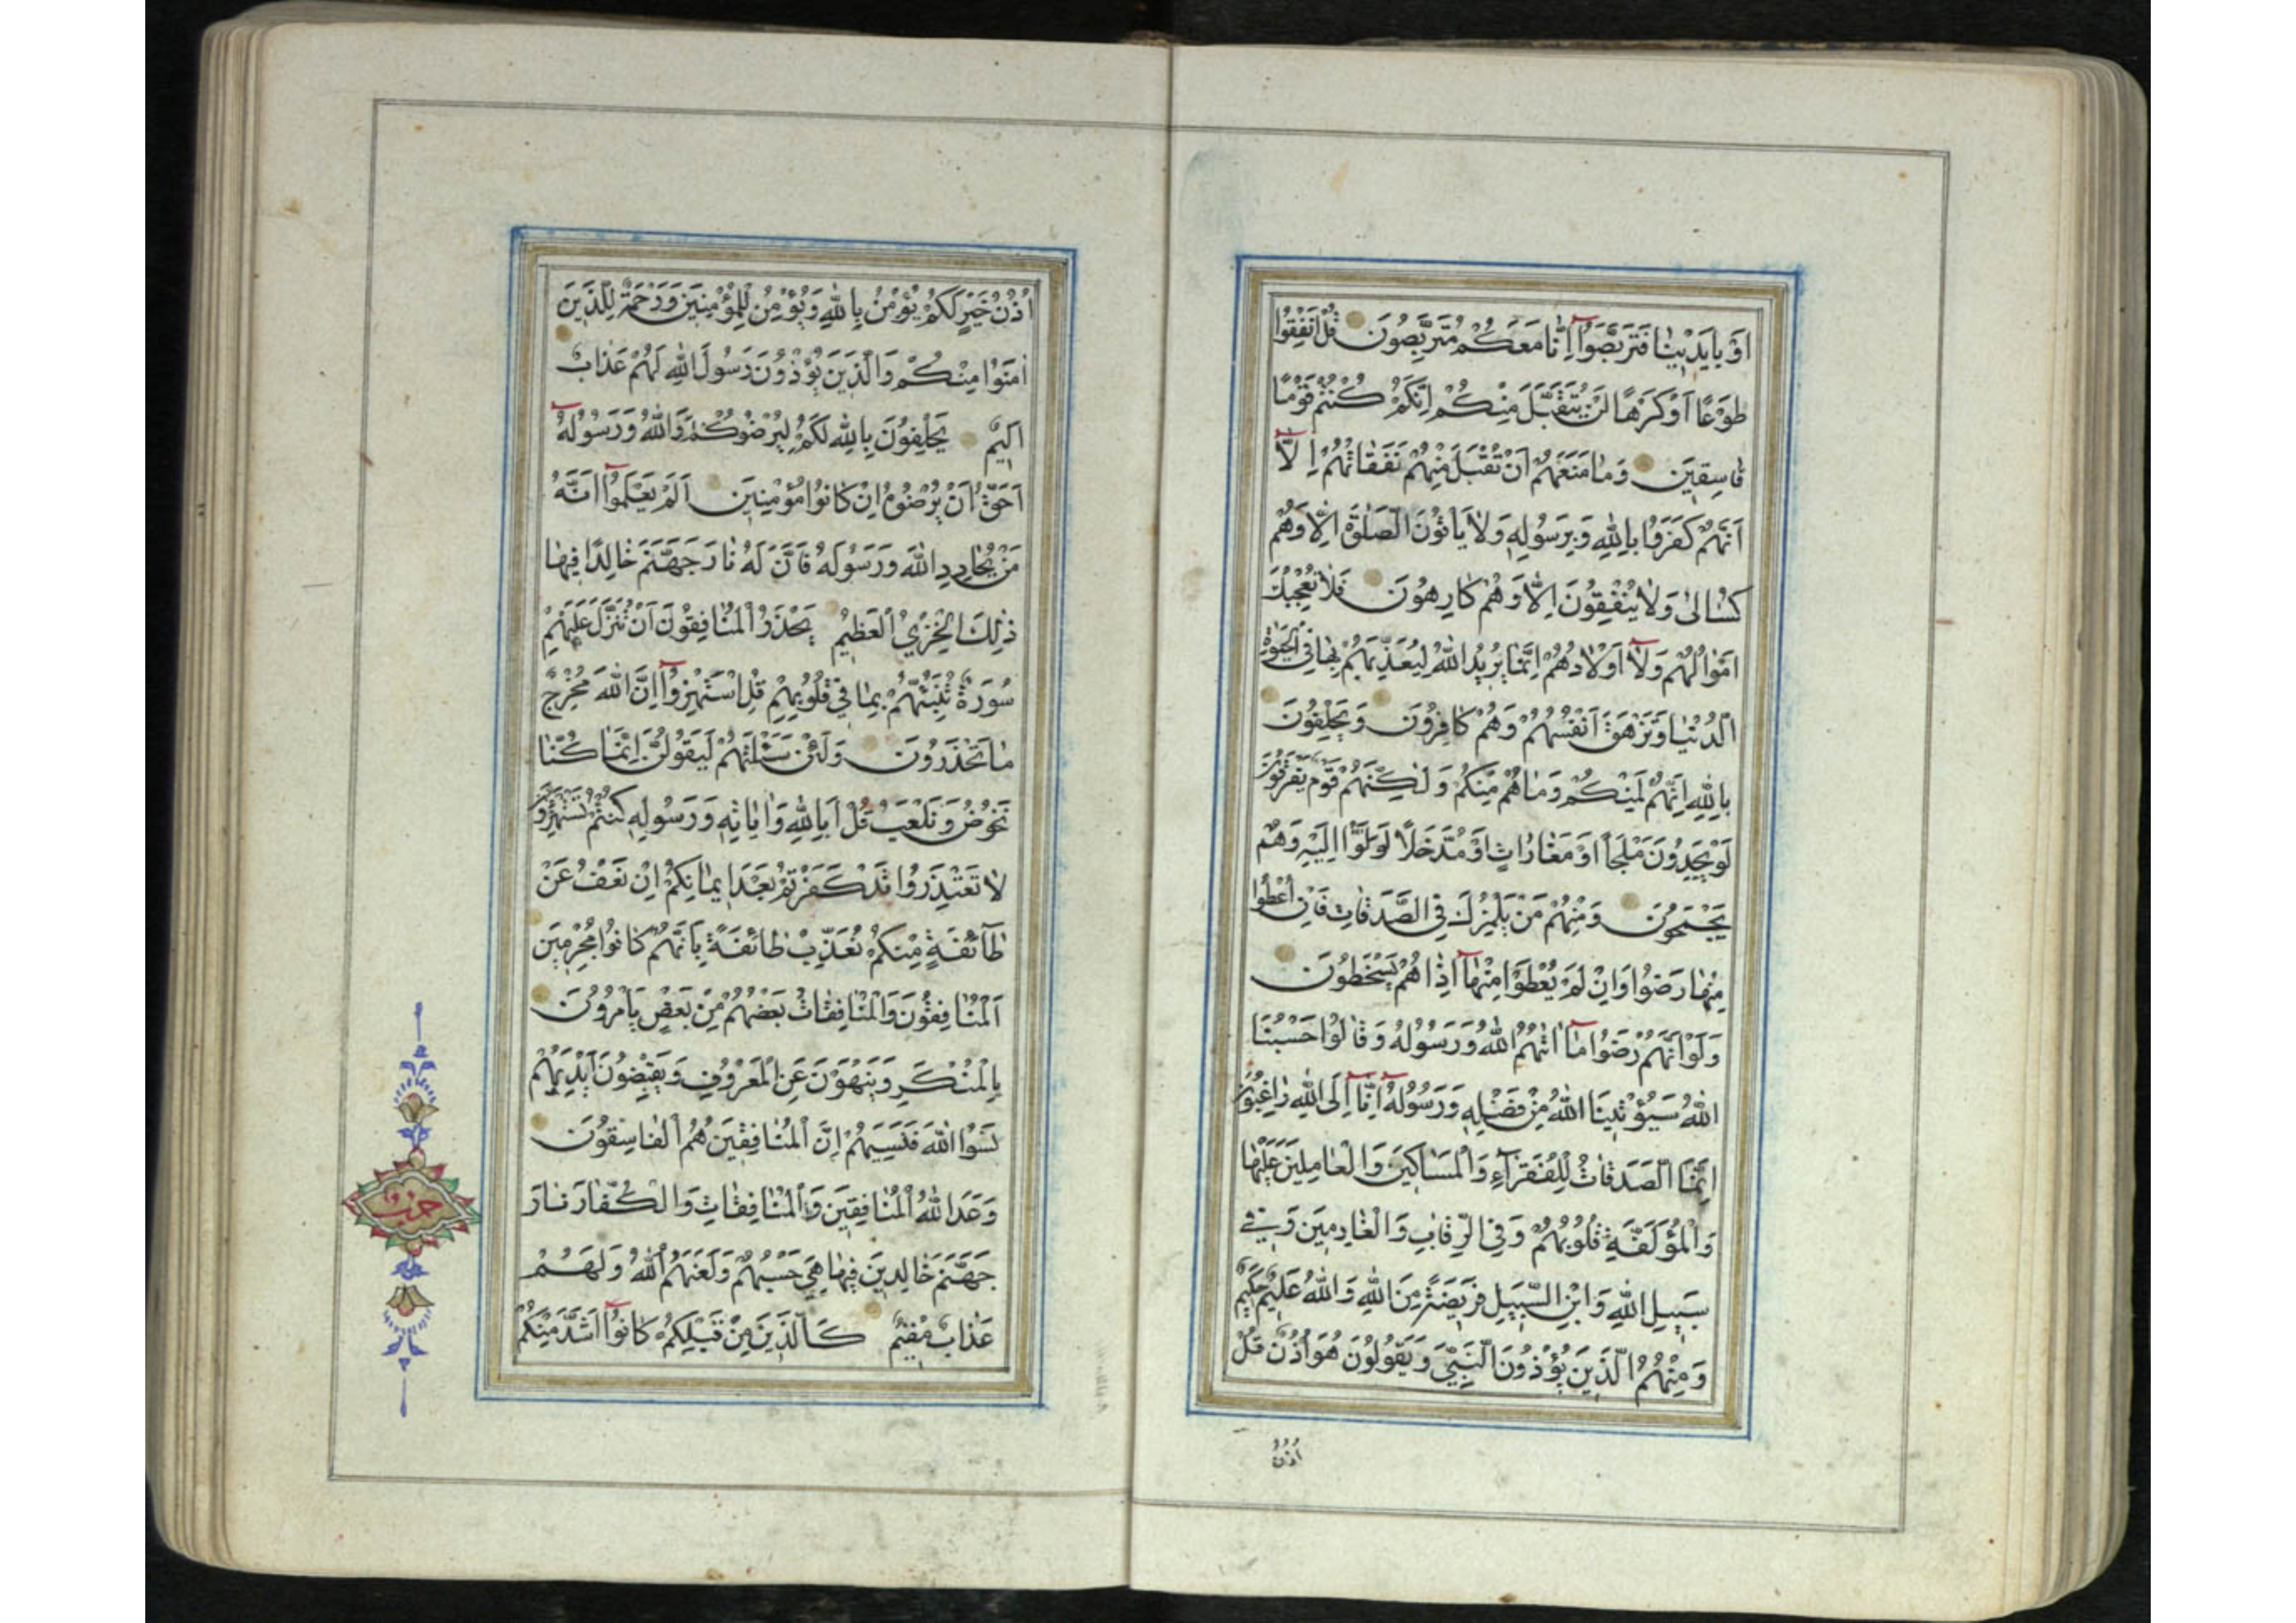 اَوْ بِاَيْدِيْنَا فَتَرَبَّصُوٓا اِنَّا مَعَكُمْ مُتَرَبِّصُونَ قُلْ اَنْفِقُوا
طَوْعًا اَوْ كَرْهًا لَنْ يُتَقَبَّلَ مِنْكُمْ اِنَّكُمْ كُنْتُمْ قَوْمًا
فَاسِقِينَ وَمَا مَنَعَهُمْ اَنْ تُقْبَلَ مِنْهُمْ نَفَقَاتُهُمْ اِلَّآ
اَنَّهُمْ كَفَرُوا بِاللّٰهِ وَبِرَسُولِهِ وَلَا يَاْتُونَ الصَّلٰوةَ اِلَّا وَهُمْ
كُسَالىٰ وَلَا يُنْفِقُونَ اِلَّا وَهُمْ كَارِهُونَ فَلَا تُعْجِبْكَ
اَمْوَالُهُمْ وَلَآ اَوْلَادُهُمْ اِنَّمَا يُرِيدُ اللّٰهُ لِيُعَذِّبَهُمْ بِهَا فِي الْحَيٰوةِ
الدُّنْيَا وَتَزْهَقَ اَنْفُسُهُمْ وَهُمْ كَافِرُونَ وَيَحْلِفُونَ
بِاللّٰهِ اِنَّهُمْ لَمِنْكُمْ وَمَا هُمْ مِنْكُمْ وَلٰكِنَّهُمْ قَوْمٌ يَفْرَقُونَ
لَوْ يَجِدُونَ مَلْجَأً اَوْ مَغَارَاتٍ اَوْ مُدَّخَلًا لَوَلَّوْا اِلَيْهِ وَهُمْ
يَجْمَحُونَ وَمِنْهُمْ مَنْ يَلْمِزُكَ فِي الصَّدَقَاتِ فَاِنْ اُعْطُوا
مِنْهَا رَضُوا وَاِنْ لَمْ يُعْطَوْا مِنْهَآ اِذَا هُمْ يَسْخَطُونَ
وَلَوْ اَنَّهُمْ رَضُوا مَآ اٰتٰهُمُ اللّٰهُ وَرَسُولُهُ وَقَالُوا حَسْبُنَا
اللّٰهُ سَيُؤْتِينَا اللّٰهُ مِنْ فَضْلِهِ وَرَسُولُهُٓ اِنَّآ اِلَى اللّٰهِ رَاغِبُونَ
اِنَّمَا الصَّدَقَاتُ لِلْفُقَرَآءِ وَالْمَسَاكِينَ وَالْعَامِلِينَ عَلَيْهَا
وَالْمُؤَلَّفَةِ قُلُوبُهُمْ وَفِي الرِّقَابِ وَالْغَارِمِينَ وَفِي
سَبِيلِ اللّٰهِ وَابْنِ السَّبِيلِ فَرِيضَةً مِنَ اللّٰهِ وَاللّٰهُ عَلِيمٌ حَكِيمٌ
وَمِنْهُمُ الَّذِينَ يُؤْذُونَ النَّبِيَّ وَيَقُولُونَ هُوَ اُذُنٌ قُلْ
اُذُنُ
اُذُنُ خَيْرٍ لَكُمْ يُؤْمِنُ بِاللّٰهِ وَيُؤْمِنُ لِلْمُؤْمِنِينَ وَرَحْمَةٌ لِلَّذِينَ
اٰمَنُوا مِنْكُمْ وَالَّذِينَ يُؤْذُونَ رَسُولَ اللّٰهِ لَهُمْ عَذَابٌ
اَلِيمٌ يَحْلِفُونَ بِاللّٰهِ لَكُمْ لِيُرْضُوكُمْ وَاللّٰهُ وَرَسُولُهُٓ
اَحَقُّ اَنْ يُرْضُوهُ اِنْ كَانُوا مُؤْمِنِينَ اَلَمْ يَعْلَمُوٓا اَنَّهُ
مَنْ يُحَادِدِ اللّٰهَ وَرَسُولَهُ فَاَنَّ لَهُ نَارَ جَهَنَّمَ خَالِدًا فِيهَا
ذٰلِكَ الْخِزْيُ الْعَظِيمُ يَحْذَرُ الْمُنَافِقُونَ اَنْ تُنَزَّلَ عَلَيْهِمْ
سُورَةٌ تُنَبِّئُهُمْ بِمَا فِي قُلُوبِهِمْ قُلِ اسْتَهْزِؤُٓا اِنَّ اللّٰهَ مُخْرِجٌ
مَا تَحْذَرُونَ وَلَئِنْ سَئَلْتَهُمْ لَيَقُولُنَّ اِنَّمَا كُنَّا
نَخُوضُ وَنَلْعَبُ قُلْ اَبِاللّٰهِ وَاٰيَاتِهِ وَرَسُولِهِ كُنْتُمْ تَسْتَهْزِؤُنَ
لَا تَعْتَذِرُوا قَدْ كَفَرْتُمْ بَعْدَ اِيمَانِكُمْ اِنْ نَعْفُ عَنْ
طَآئِفَةٍ مِنْكُمْ نُعَذِّبْ طَائِفَةً بِاَنَّهُمْ كَانُوا مُجْرِمِينَ
اَلْمُنَافِقُونَ وَالْمُنَافِقَاتُ بَعْضُهُمْ مِنْ بَعْضٍ يَاْمُرُونَ
بِالْمُنْكَرِ وَيَنْهَوْنَ عَنِ الْمَعْرُوفِ وَيَقْبِضُونَ اَيْدِيَهُمْ
نَسُوا اللّٰهَ فَنَسِيَهُمْ اِنَّ الْمُنَافِقِينَ هُمُ الْفَاسِقُونَ
وَعَدَ اللّٰهُ الْمُنَافِقِينَ وَالْمُنَافِقَاتِ وَالْكُفَّارَ نَارَ
جَهَنَّمَ خَالِدِينَ فِيهَا هِيَ حَسْبُهُمْ وَلَعَنَهُمُ اللّٰهُ وَلَهُمْ
عَذَابٌ مُقِيمٌ كَالَّذِينَ مِنْ قَبْلِكُمْ كَانُوٓا اَشَدَّ مِنْكُمْ
حزب